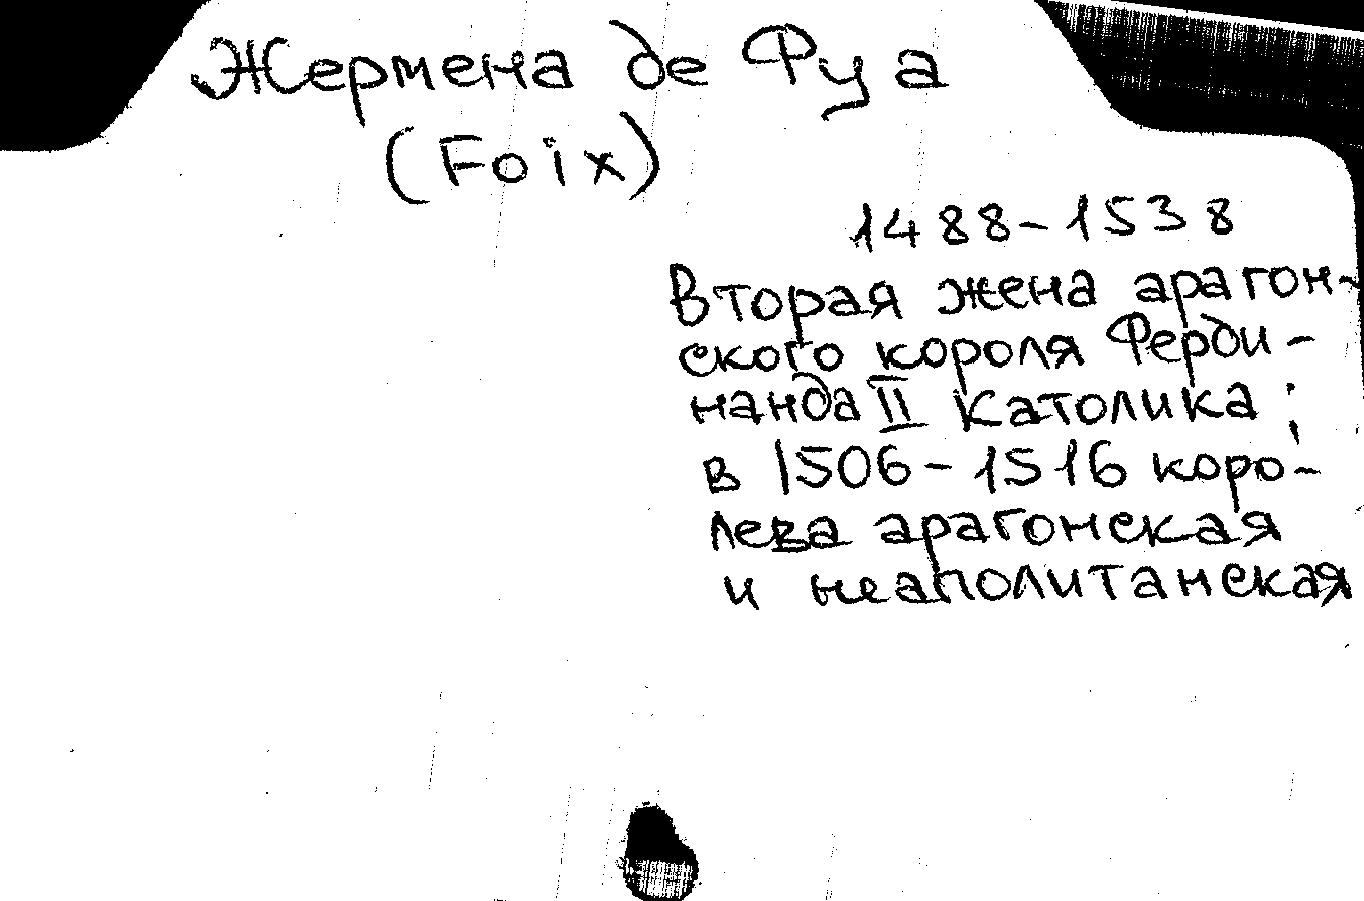 Жермена де Фуа
(Foix)
1488-1538
Вторая жена арагон-
ского короля Ферди-
нанда II Католика;
в 1506-1516 коро-
лева арагонская
и неаполитанская